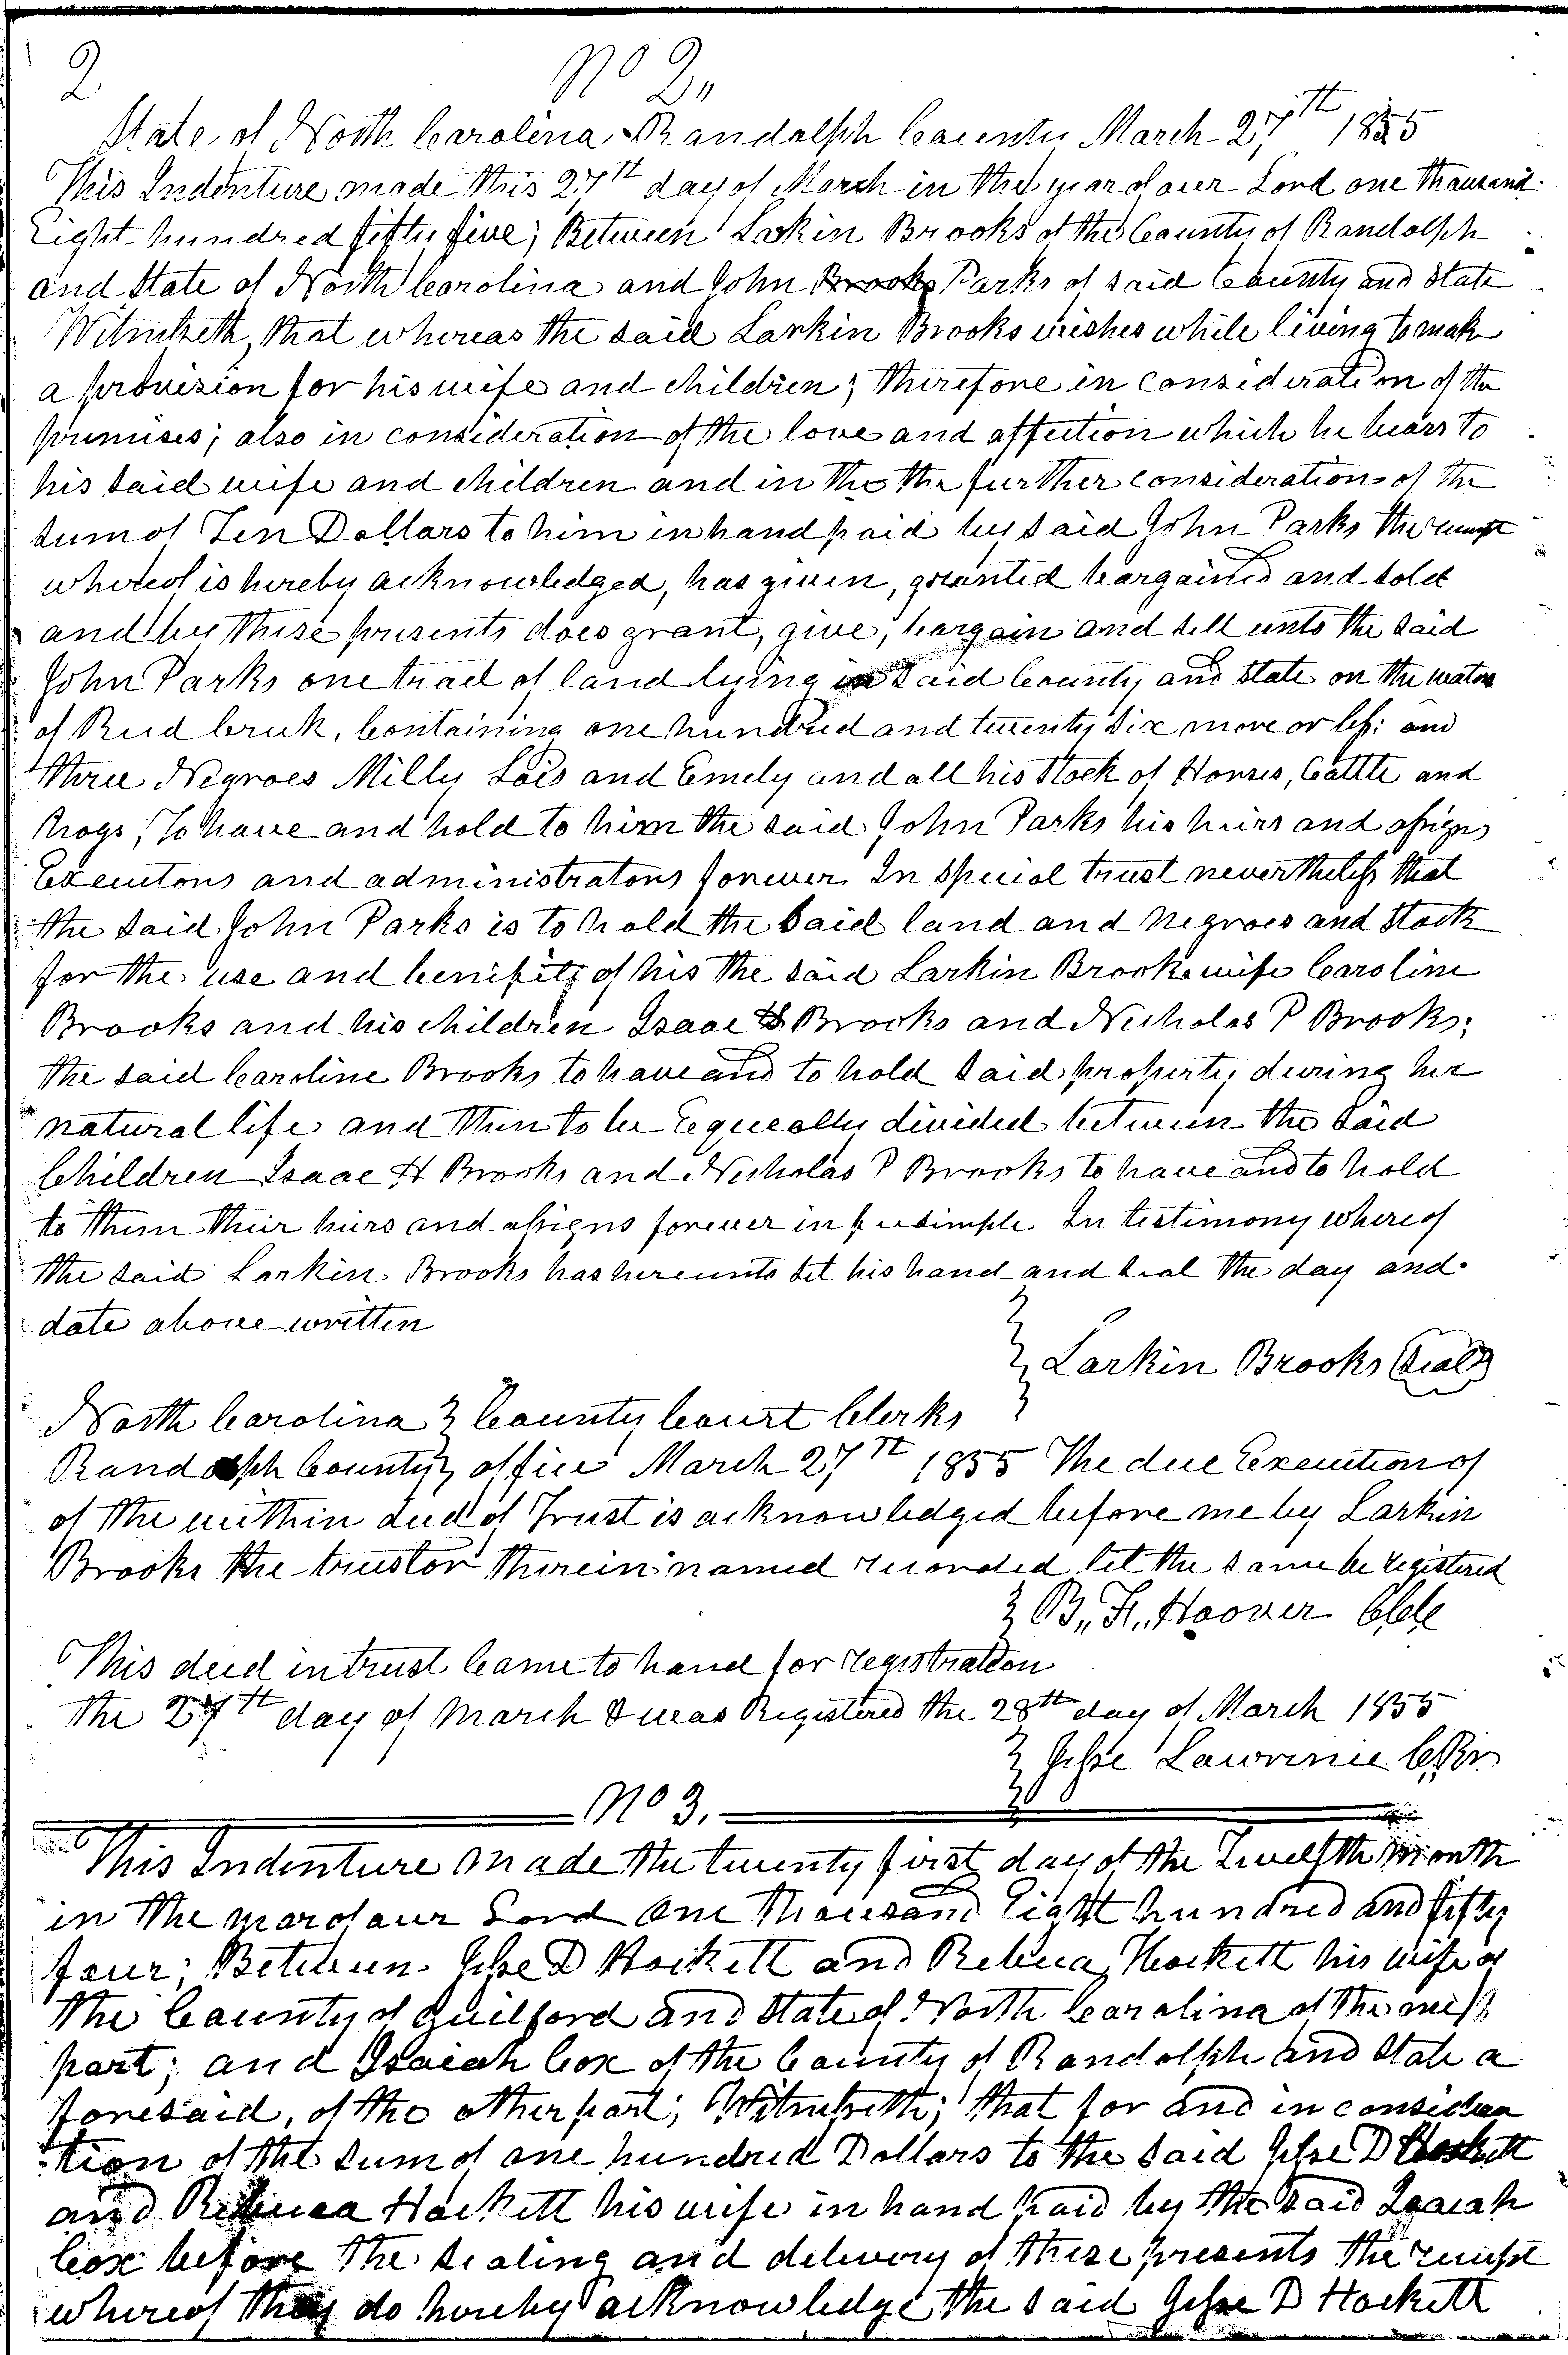 2 No 2,,
State of North Carolina, Randolph County March 27th 1855
This Indenture made this 27th day of March in the year of our Lord one thousand
Eight hundred fifty five; Between Larkin Brooks of the County of Randolph
and State of North Carolina and John Brooks Parks of said County and State
Witnesseth, that whereas the said Larkin Brooks wishes while living to make
a provision for his wife and children; Therefore in consideration of the
premises; also in consideration of the love and affection which he bears to
his said wife and children and in the the further consideration of the
sum of Ten Dollars to him in hand paid by said John Parks the receipt
whereof is hereby acknowledged, has given, granted bargained and sold
and by these presents does grant, give, bargain and sell unto the said
John Parks one tract of land lying in said County and State on the waters
of Reed Creek, Containing one hundred and twenty six more or less: and
three Negroes Milly Lois and Emely and all his Stock of Horses, Cattle and
hogs, To have and hold to him the said John Parks his heirs and assigns
Executors and administrators forever In special trust nevertheless that
the said John Parks is to hold the said land and negroes and Stock
for the use and benifits of his the said Larkin Brooks wife Caroline
Brooks and his children Isaac H Brooks and Nicholas P Brooks;
the said Caroline Brooks to have and to hold said property during her
natural life and then to be Equeally divided between the said
Children Isaac H Brooks and Nicholas P Brooks to have and to hold
to them their heirs and assigns forever in fee simple. In testimony whereof
the said Larkin Brooks has hereunto set his hand and seal the day and
date above written
Larkin Brooks (seal)
North Carolina } County Court Clerks
Randolph County } office March 27th 1855 The due Execution of
of the within deed of Trust is acknowledged before me by Larkin
Brooks the trustor therein named recorded let the same be registered
B,, F,, Hoover Clk
This deed in trust Came to hand for registration
the 27th day of March & was Registered the 28th day of March 1855
Jesse Lawrence
No 3.
This Indenture made the twenty first day of the Twelfth month
in the year of our Lord One thousand Eight hundred and fifty
four; Between Jesse D Hockett and Rebeca Hockett his wife of
the County of Guilford and State of North Carolina of the one
part; and Isaiah Cox of the County of Randolph and State a
foresaid, of the other part; Witnesseth; that for and in considera
tion of the sum of one hundred Dollars to the said Jesse D Hockett
and Rebecca Hockett his wife in hand paid by the said Isaiah
Cox before the sealing and delivery of these presents the receipt
whereof they do hereby acknowledge the said Jesse D Hockett